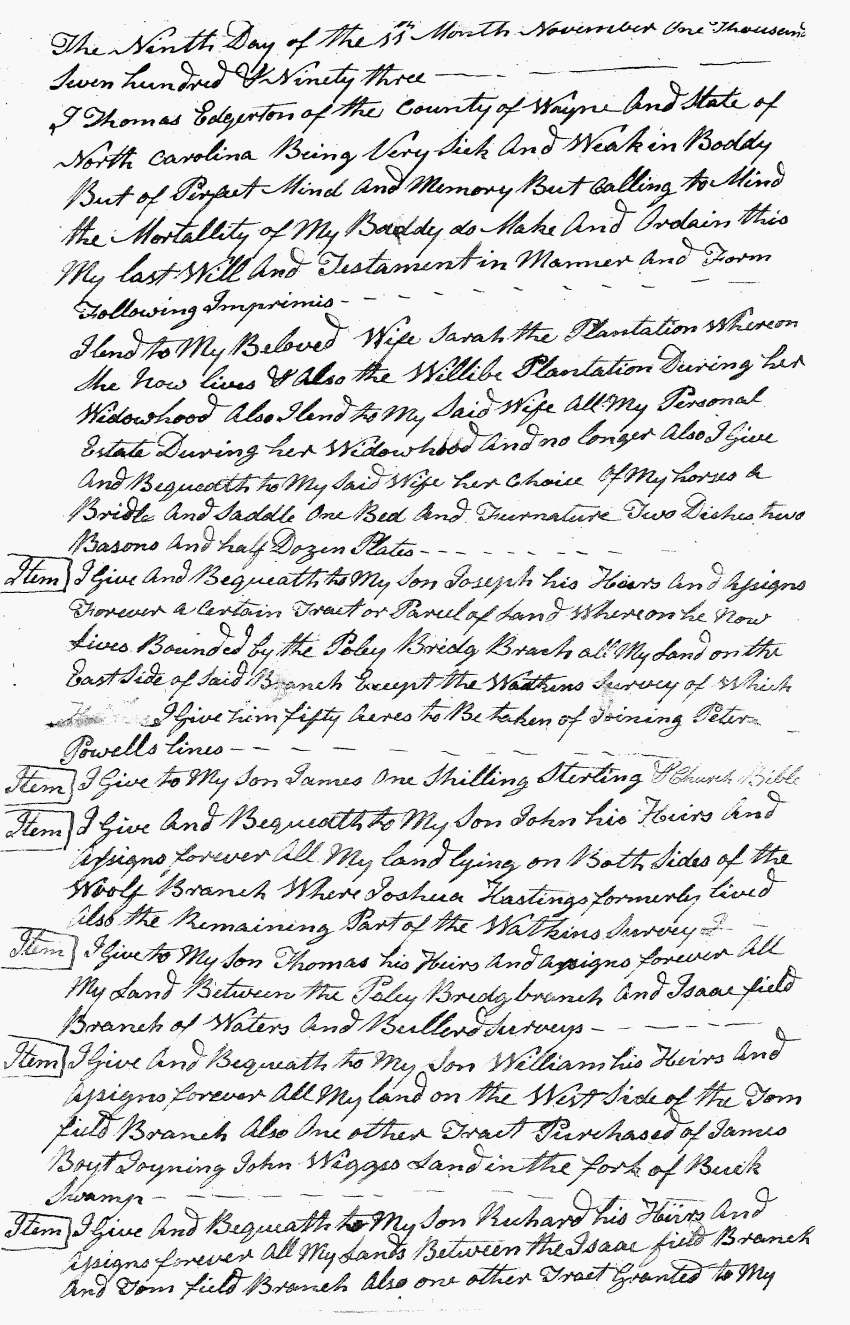 The Ninth Day of the 11th Month November One Thousand
Seven hundred & Ninety three
I Thomas Edgerton of the County of Wayne And State of
North Carolina Being Very Sick And Weak in Boddy
But of Perfact Mind And Memory But Calling to Mind
the Mortallity of My Boddy do Make And Ordain this
My last Will And Testament in Manner And Form
Following Imprimis
I lend to My Beloved Wife Sarah the Plantation Whereon
She Now lives & Also the Willibe Plantation During her
Widowhood Also I lend to My Said Wife All My Personal
Estate During her Widowhood And no longer Also I Give
And Bequeath to My Said Wife her Choice Of My horses a
Bridle And Saddle One Bed And Furnature Two Dishes two
Basons And half Dozen Plates
Item I Give And Bequeath to My Son Joseph his Heirs And Assigns
Forever a Certain Tract or Parcel of Land Whereon he Now
Lives Bounded by the Poley Bridg Brach all My Land on the
East Side of Said Branch Except the Watkins Survey of Which
I Give him fifty Acres to Be taken of Joining Peter
Powells lines
Item I Give to My Son James One Shilling Sterling & Church Bible
Item I Give And Bequeath to My Son John his Heirs And
Assigns forever All My land lying on Both Sides of the
Woolf Branch Where Joshua Hastings formerly lived
Also the Remaining Part of the Watkins Survey
Item I Give to My Son Thomas his Heirs And Assigns forever All
My Land Between the Poley Bredg branch And Isaac field
Branch of Waters And Bullerd Surveys
Item I Give And Bequeath to My Son William his Heirs And
Assigns forever All My land on the West Side of the Tom
field Branch Also One other Tract Purchased of James
Boyt Joyning John Wiggs Land in the fork of Buck
Swamp
Item I Give And Bequeath to My Son Richard his Heirs And
Assigns forever All My Lands Between the Isaac field Branch
And Tom field Branch Also one other Tract Granted to My